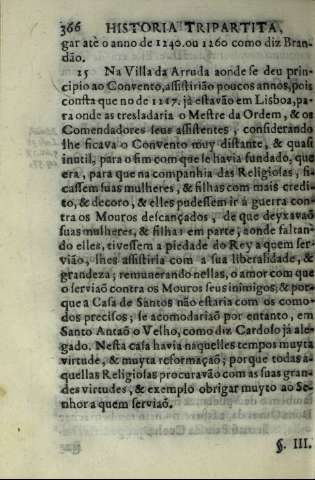 366 HISTORIA TRIPARTITA,
gar atè o anno de 1240. ou 1260 como diz Bran-
dão.
15 Na Villa da Arruda aonde se deu prin-
cipio ao Convento, assistirião poucos annos, pois
consta que no de 1217. já estavão em Lisboa, pa-
ra onde as tresladaria o Mestre da Ordem, & os
Comendadores seus assistentes, considerando
lhe ficava o Convento muy distante, & quasi
inutil, para o fim com que se havia fundado, que
era, para que na companhia das Religiosas, fi-
cassem suas mulheres, & filhas com mais credi-
to, & decoro, & elles pudessem ir á guerra con-
tra os Mouros descançados, de que deyxavaõ
suas mulheres, & filhas em parte, aonde faltan-
do elles, tivessem a piedade do Rey a quem ser-
vião, lhes assistiria com a sua liberalidade, &
grandeza; remunerando nellas, o amor com que
o serviaõ contra os Mouros seus inimigos; & por-
que a Casa de Santos não estaria com os como-
dos precisos, se acomodariaõ por entanto, em
Santo Antaõ o Velho, como diz Cardoso já ale-
gado. Nesta casa havia naquelles tempos muyta
virtude, & muyta reformaçaõ; porque todas a-
quellas Religiosas procuravão com as suas gran-
des virtudes, & exemplo obrigar muyto ao Se-
nhor a quem serviaõ.
§. III.